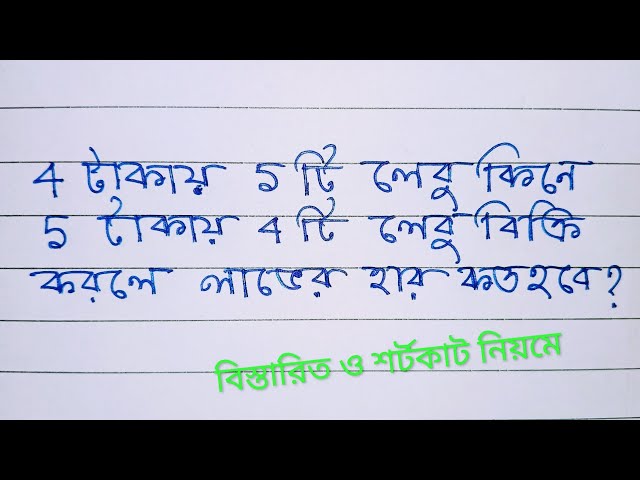 4 টাকায় 5 টি লেবু কিনে
5 টাকায় 4 টি লেবু বিক্রি
করলে লাভের হার কত হবে?
বিস্তারিত ও শর্টকাট নিয়মে